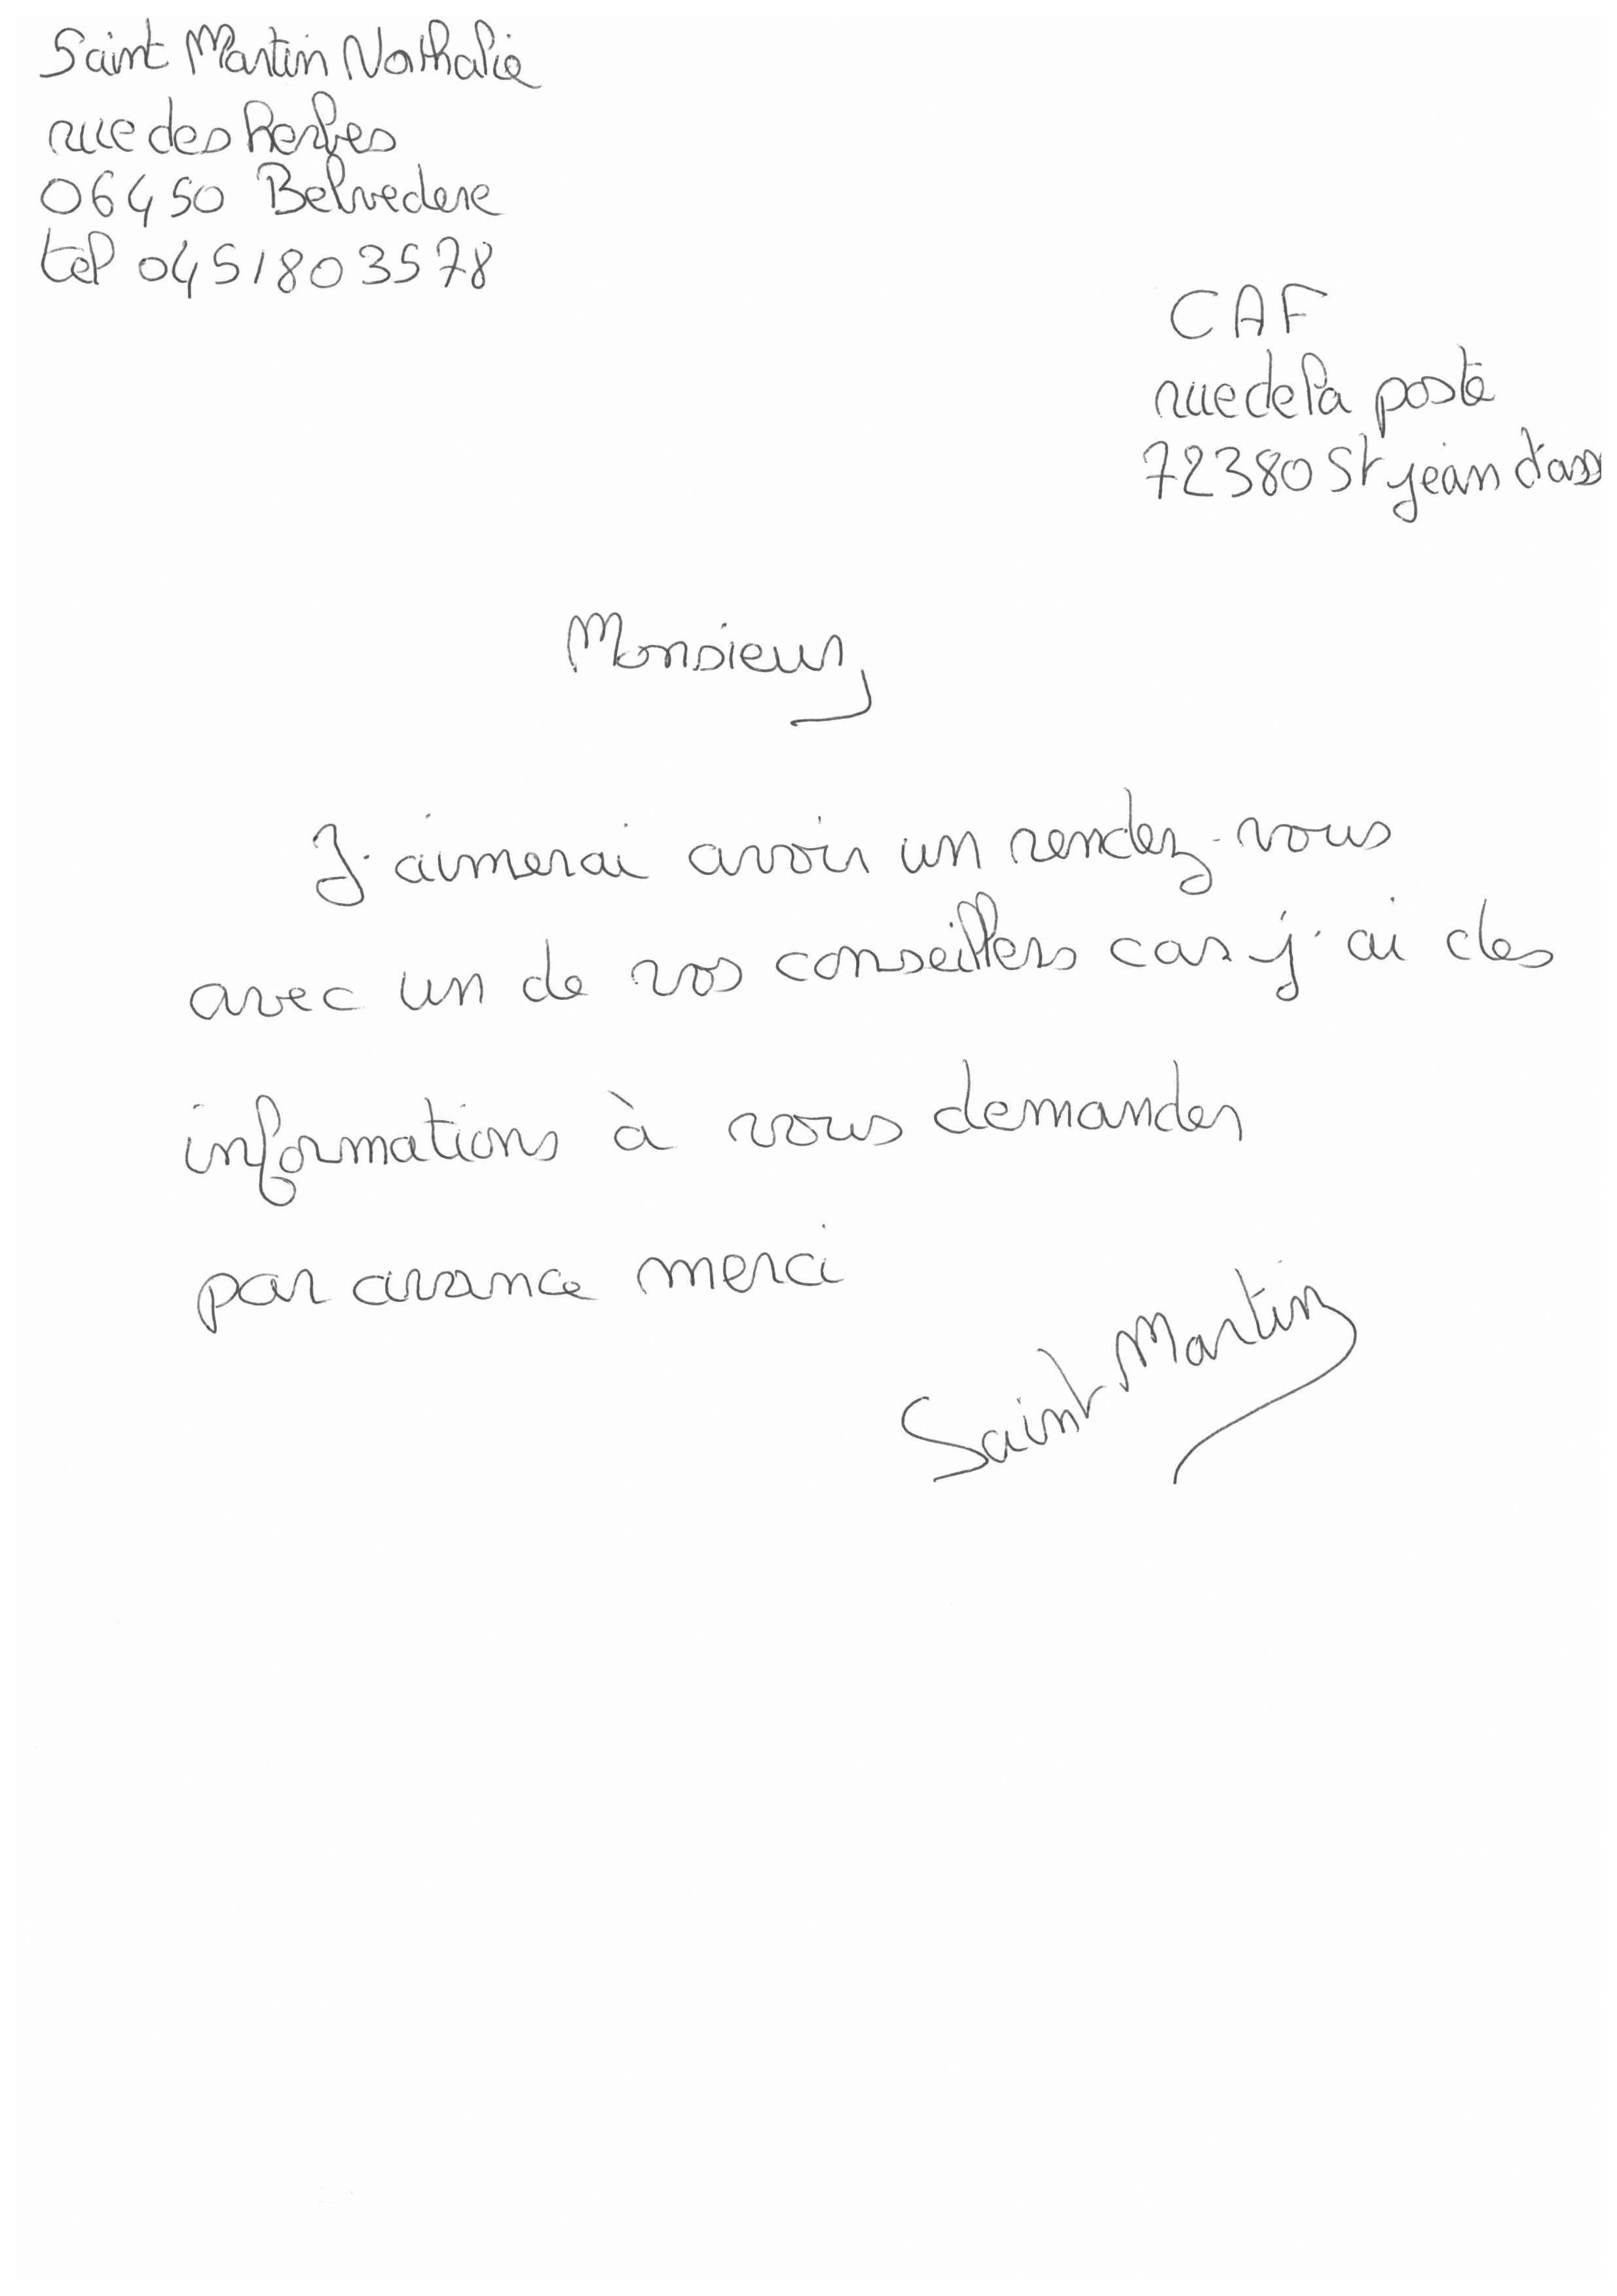 Saint Martin Nathalie
rue des herbes
06450 Belvedere
tel 0451803578
CAF
rue de la poste
72380 St jean d'ass
Monsieur
J'aimerai avoir un rendez-vous
avec un de vos conseillers car j'ai des
informations à vous demander
par avance merci
Saint Martin